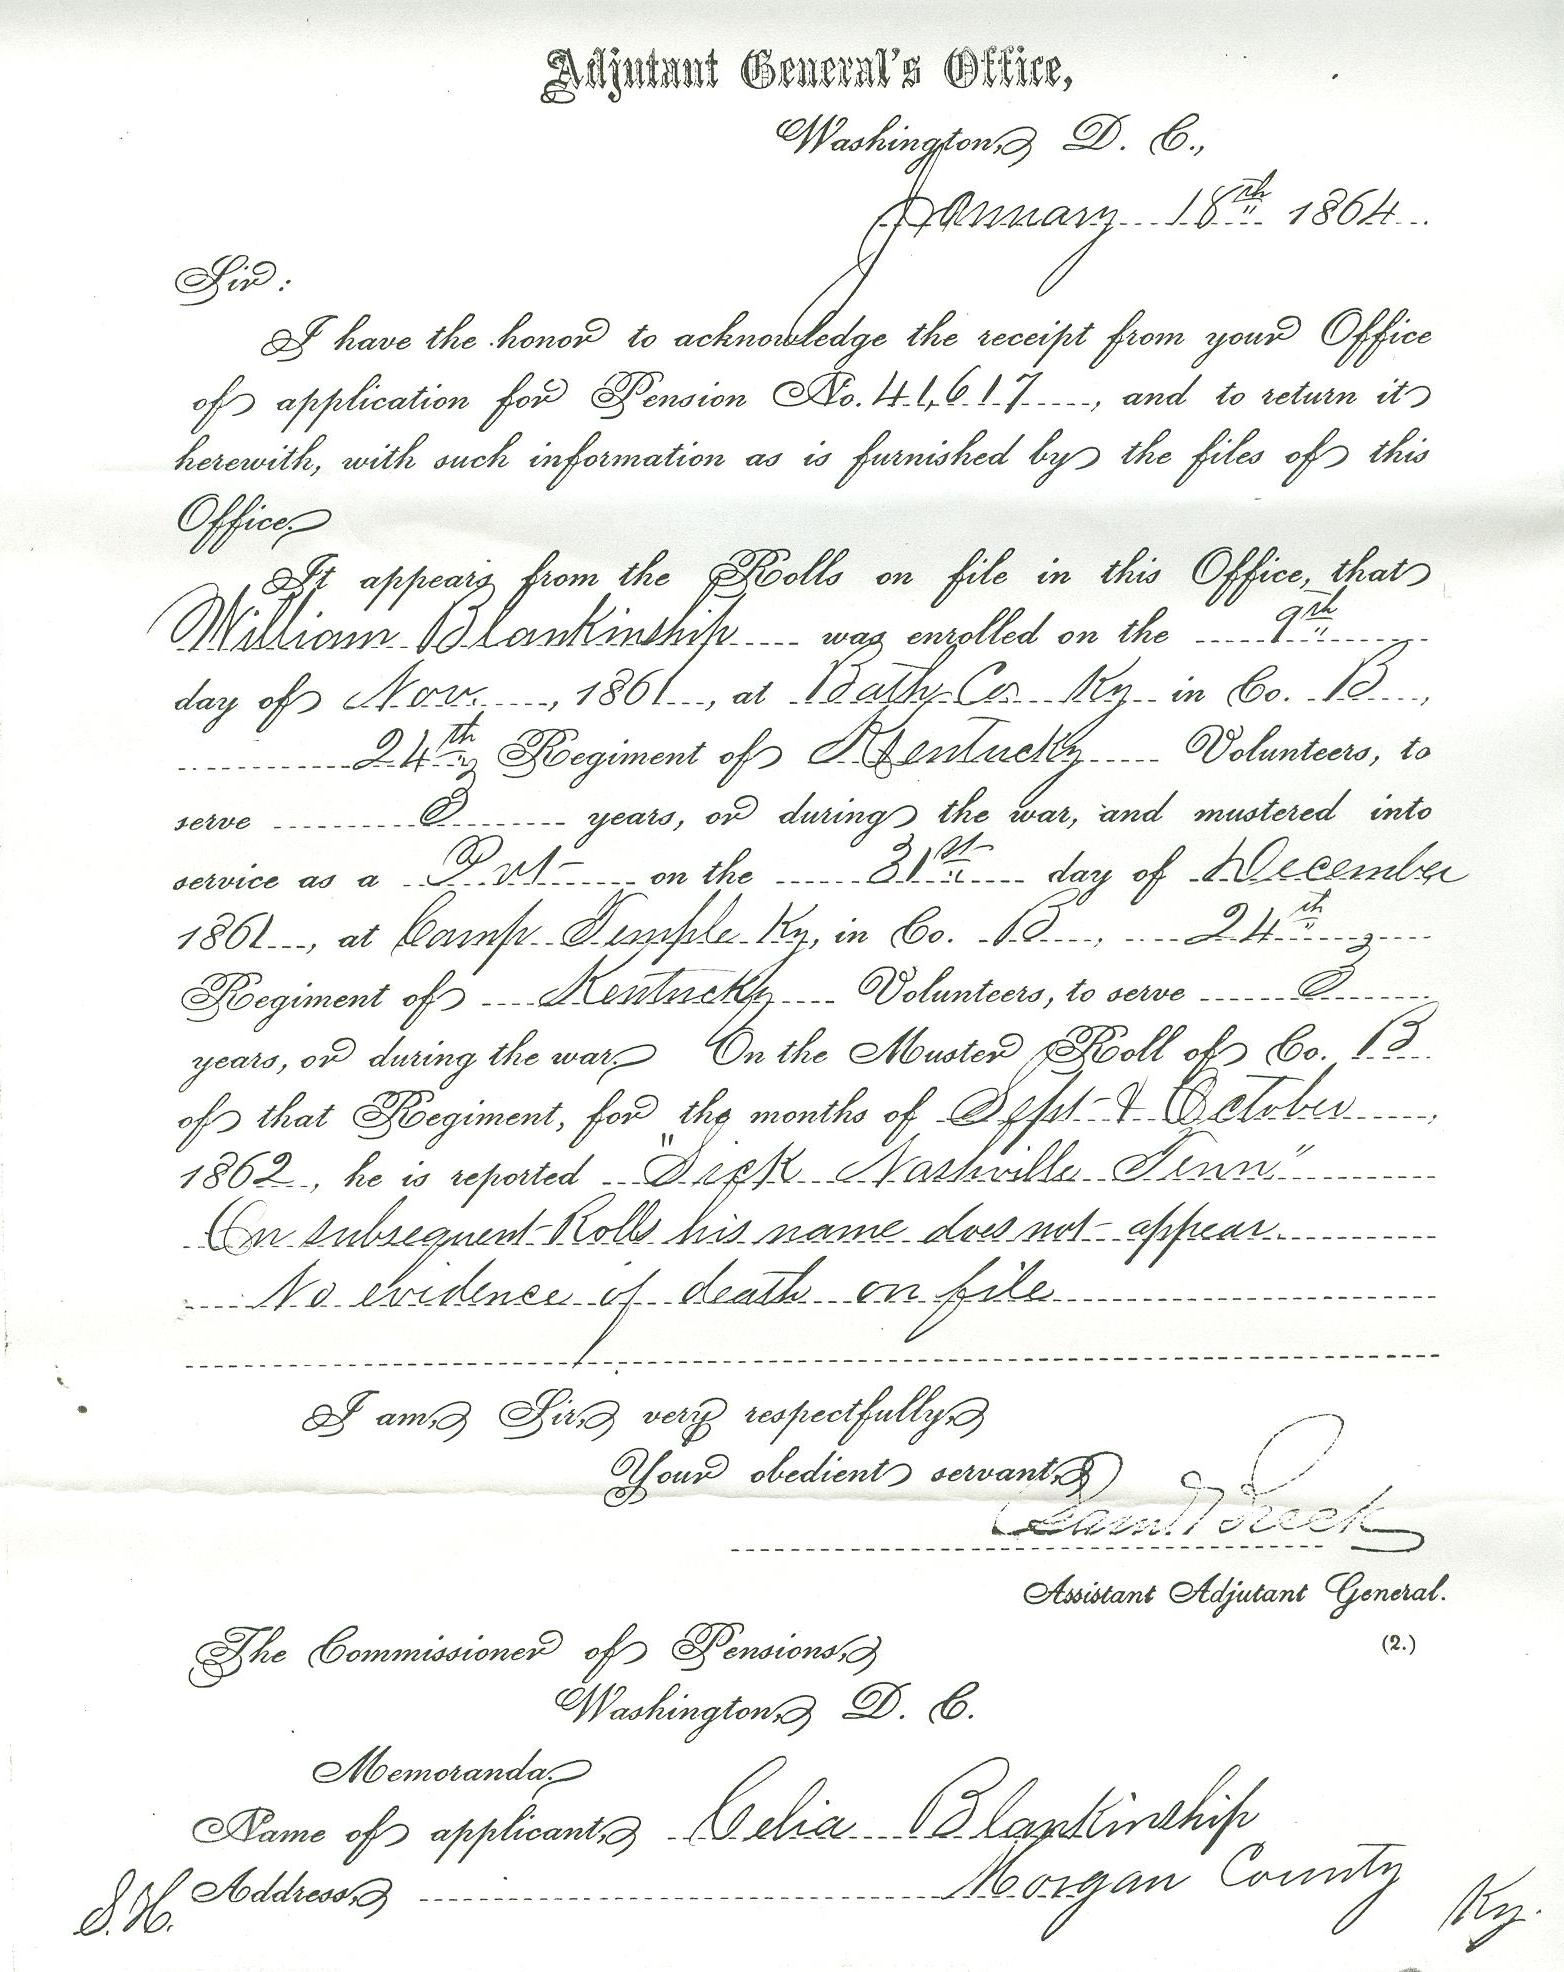 Adjutant General's Office,
Washington, D. C.,
January 18th 1864.
Sir:
I have the honor to acknowledge the receipt from your Office
of application for Pension No. 41,617, and to return it
herewith, with such information as is furnished by the files of this
Office.
It appears from the Rolls on file in this Office, that
William Blankinship was enrolled on the 9th
day of Nov., 1861, at Bath Co. Ky in Co. B,
24th Regiment of Kentucky Volunteers, to
serve 3 years, or during the war, and mustered into
service as a Pvt on the 31st day of December
1861, at Camp Temple Ky, in Co. B, 24th
Regiment of Kentucky Volunteers, to serve 3
years, or during the war. On the Muster Roll of Co. B
of that Regiment, for the months of Sept & October,
1862, he is reported "Sick Nashville Tenn"
On subsequent Rolls his name does not appear.
No evidence of death on file
I am, Sir, very respectfully,
Your obedient servant,
Saml Breck
Assistant Adjutant General.
(2.)
The Commissioner of Pensions,
Washington, D. C.
Memoranda.
Name of applicant, Celia Blankinship
Address, Morgan County Ky.
S.H.